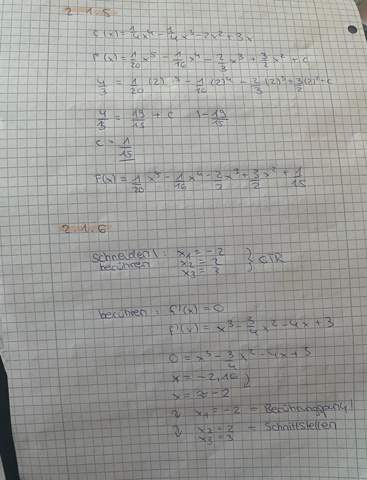 2.1.5
f(x) = 1/4 x⁴ - 1/4 x³ - 2x² + 3x
F(x) = 1/20 x⁵ - 1/16 x⁴ - 2/3 x³ + 3/2 x² + c
4/3 = 1/20 (2)⁵ - 1/16 (2)⁴ - 2/3 (2)³ + 3/2 (2)² + c
4/3 = 19/15 + c | - 19/15
c = 1/15
F(x) = 1/20 x⁵ - 1/16 x⁴ - 2/2 x³ + 3/2 x² + 1/15
2.1.6
schneiden/: x₁ = -2
berühren x₂ = 2 } GTR
x₃ = 3
berühren: f'(x) = 0
f'(x) = x³ - 3/4 x² - 4x + 3
0 = x³ - 3/4 x² - 4x + 3
x = -2,16
x ≈ -2
x₁ = -2 = Berührungspunkt
x₂ = 2 = Schnittstellen
x₃ = 3